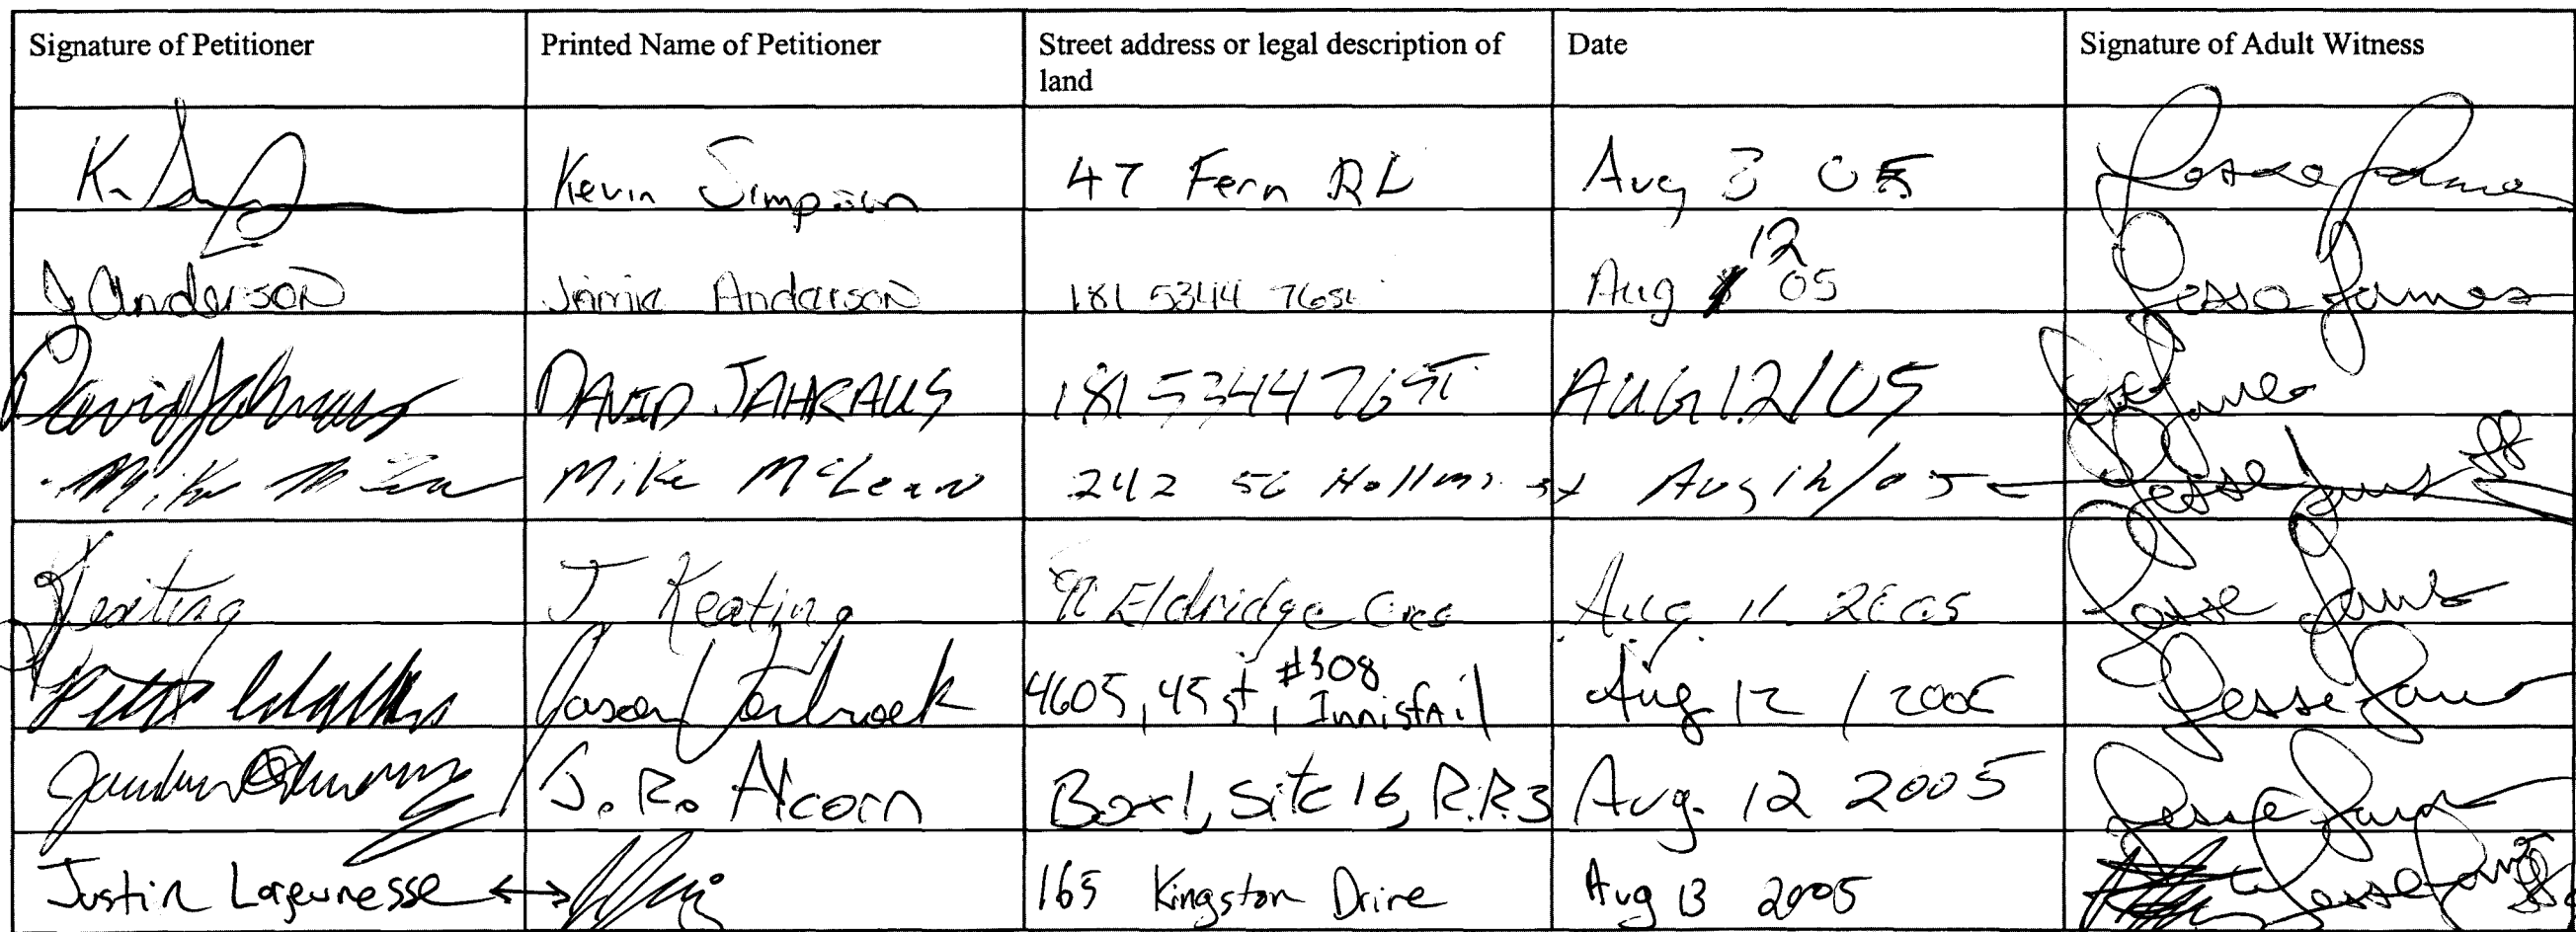 Signature of Petitioner Printed Name of Petitioner Street address or legal description of land Date Signature of Adult Witness
K. Kevin Simpson 47 Fern Rd Aug 3 05 Jesse James
J Anderson Jamie Anderson 181 5344 76st Aug 12 05 Jesse James
David Jahraus DAVID JAHRAUS 181 5344 76ST AUG 12/05 Jesse James
Mike McLean Mike McLean 242 56 st Aug 12/05 Jesse James
Keating J Keating Eldridge Cres Aug. 11 2005 Jesse James
Jason 4605, 45 st, #308 Innisfail Aug 12 / 2005 Jesse James
J. R. Acorn Box 1, Site 16, R.R.3 Aug. 12 2005 Jesse James
Justin Lajeunesse 165 Kingston Drive Aug 13 2005 Jesse James